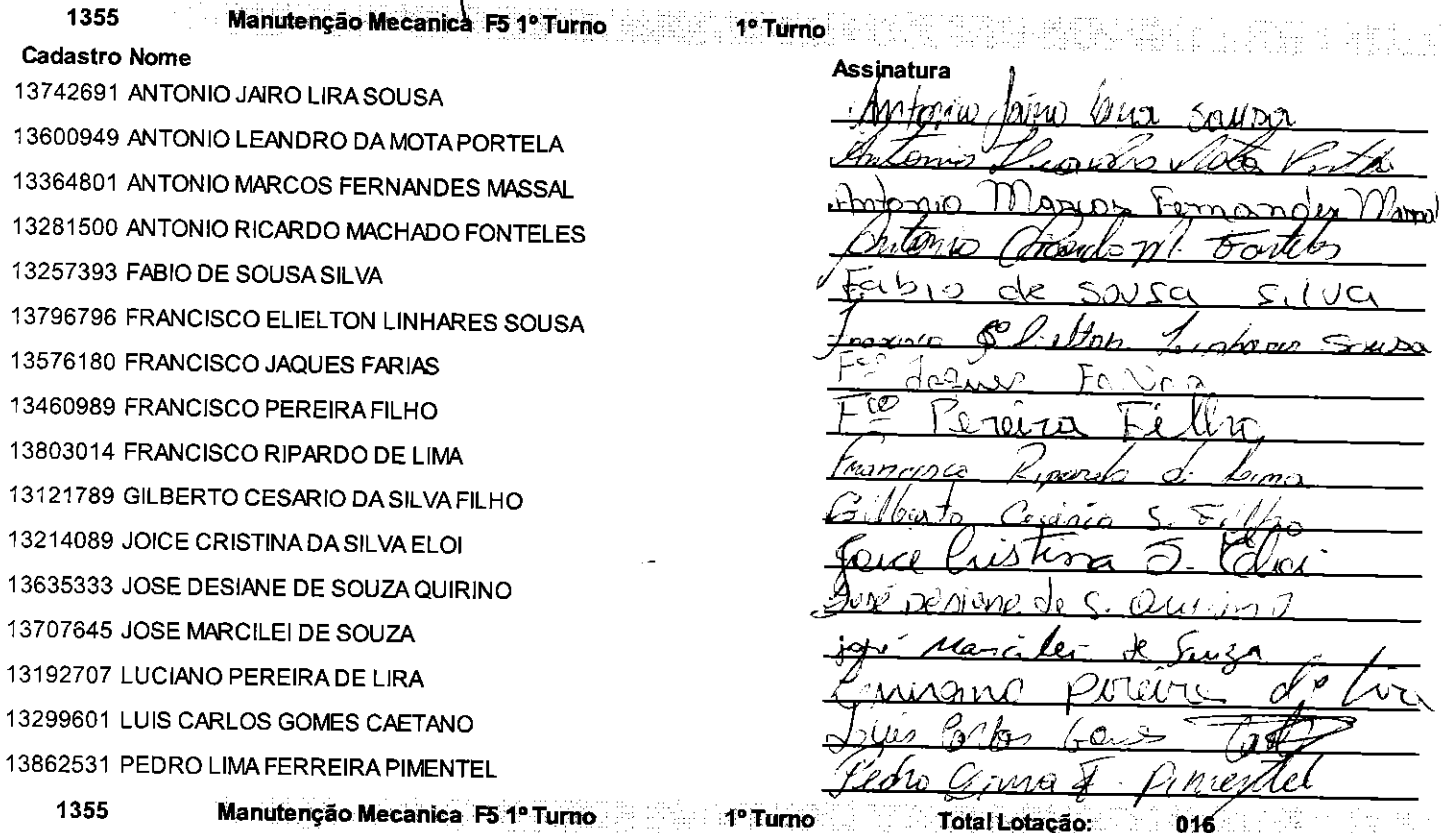 1355 Manutenção Mecanica F5 1º Turno 1º Turno
Cadastro Nome Assinatura
13742691 ANTONIO JAIRO LIRA SOUSA Antonio Jairo Lira Sousa
13600949 ANTONIO LEANDRO DA MOTA PORTELA Antonio Leandro Mota Portela
13364801 ANTONIO MARCOS FERNANDES MASSAL Antonio Marcos Fernandes Massal
13281500 ANTONIO RICARDO MACHADO FONTELES Antonio Ricardo M. Fonteles
13257393 FABIO DE SOUSA SILVA Fabio de Sousa Silva
13796796 FRANCISCO ELIELTON LINHARES SOUSA Francisco Elielton Linhares Sousa
13576180 FRANCISCO JAQUES FARIAS Fco Jaques Farias
13460989 FRANCISCO PEREIRA FILHO Fco Pereira Filho
13803014 FRANCISCO RIPARDO DE LIMA Francisco Ripardo de Lima
13121789 GILBERTO CESARIO DA SILVA FILHO Gilberto Cesário S. Filho
13214089 JOICE CRISTINA DA SILVA ELOI Joice Cristina S. Eloi
13635333 JOSE DESIANE DE SOUZA QUIRINO José Desiane de S. Quirino
13707645 JOSE MARCILEI DE SOUZA josé Marcilei de Souza
13192707 LUCIANO PEREIRA DE LIRA Luciano pereira de lira
13299601 LUIS CARLOS GOMES CAETANO Luis Carlos Gomes
13862531 PEDRO LIMA FERREIRA PIMENTEL Pedro Lima F. Pimentel
1355 Manutenção Mecanica F5 1º Turno 1º Turno Total Lotação: 016